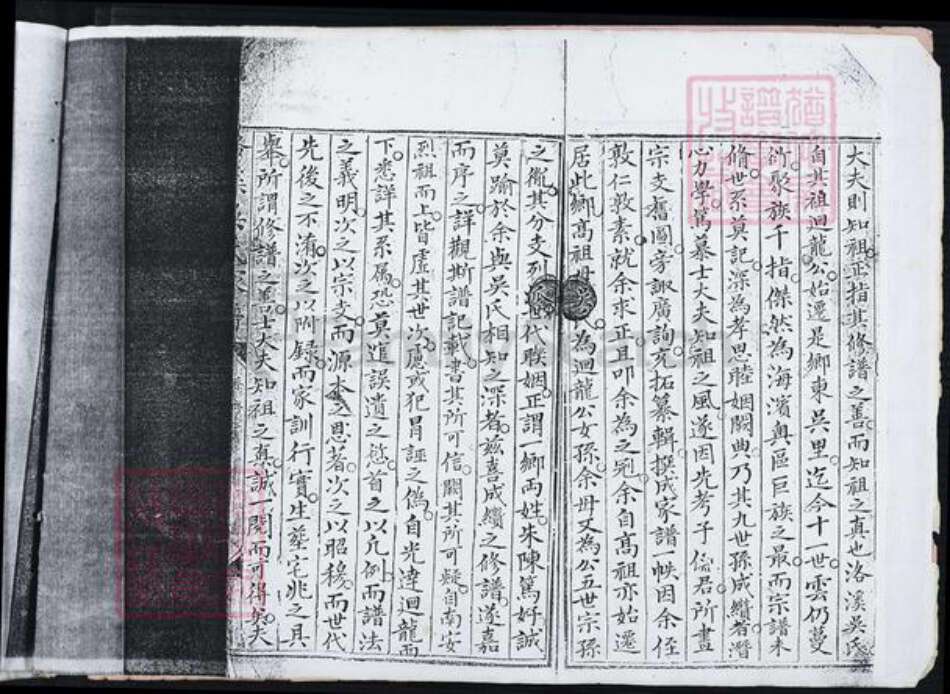 大夫則知祖正指其修譜之善而知祖之真也洛溪吳氏
自其祖迴龍公始遷是鄉東吳里迄今十一世雲仍蔓
衍聚族千指傑然為海濱奧區巨族之最而宗譜未
脩世系莫記深為孝思睦姻闕典乃其九世孫成纘者潛
心力學篤慕士大夫知祖之風遂因先考子俊君所畫
宗支舊圖旁諏廣詢充拓纂輯撰成家譜一帙因余侄
敦仁敦素就余求正且叩余為之剡余自高祖亦始遷
居此鄉高祖母 為迴龍公女孫余母又為公五世宗孫
之胤其分支列 世代聯姻正謂一鄉両姓朱陳篤好誠
莫踰於余與吳氏相知之深者兹喜成纘之修譜遂嘉
而序之詳觀斯譜記載書其所可信闕其所可疑自南安
烈祖而上皆虛其世次慮或犯冒誣之偽自光達迴龍而
下悉詳其系属恐莫追誤遺之愆首之以凢例而譜法
之義明次之以宗支而源本之思著次之以昭穆而世代
先後之不淆次之以附録而家訓行實生塟宅兆之具
舉所謂修譜之善士大夫知祖之真誠一閱而可得矣夫